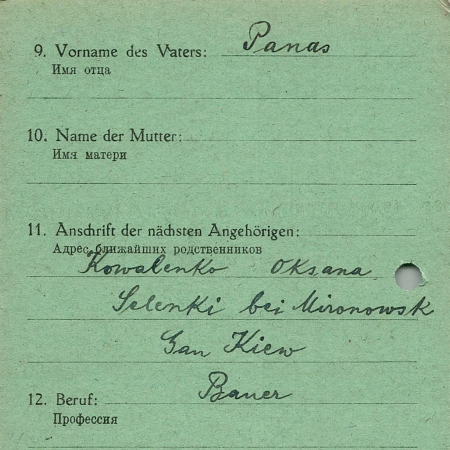 9. Vorname des Vaters: Panas
Имя отца
10. Name der Mutter:
Имя матери
11. Anschrift der nächsten Angehörigen:
Адрес ближайших родственников
Kowalenko Oksana
Selenki bei Mironowsk
Gau Kiew
12. Beruf: Bauer
Профессия